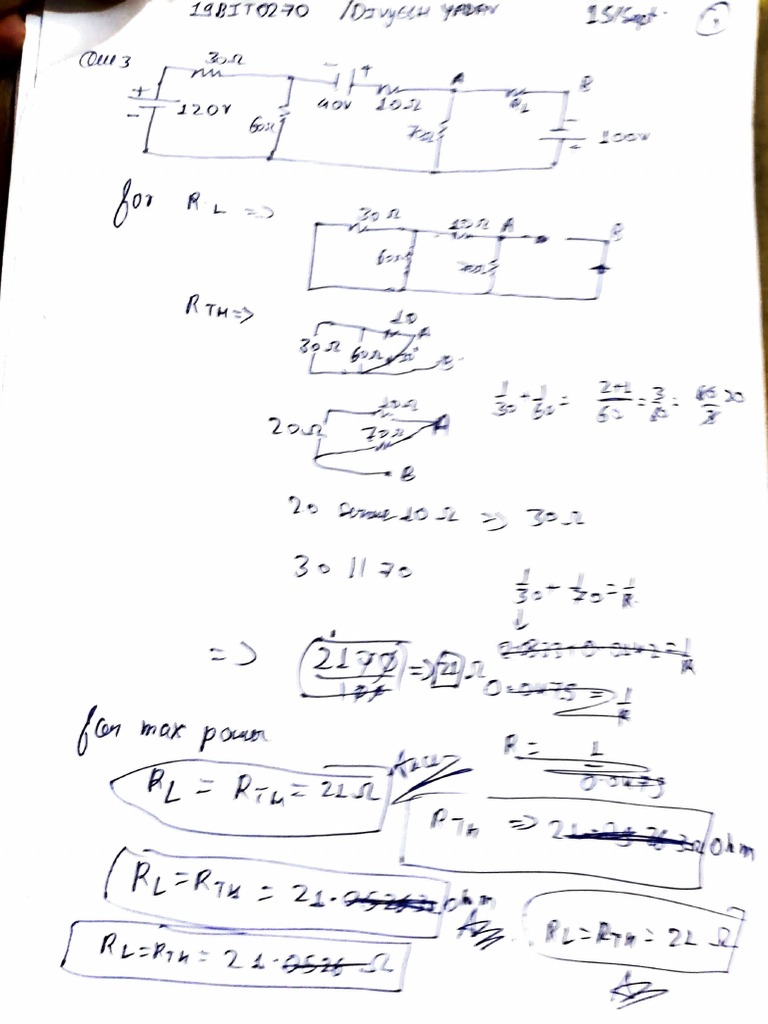 19BIT0270 /Divyesh YADAV 15/Sept. 1
Que 3
30Ω - + A RL B
+ - 120V 60Ω 40V 10Ω 70Ω 100V
for RL =>
30Ω 10Ω A B
60Ω 70Ω
RTH =>
10 A
30Ω 60Ω B
1/30 + 1/60 = 2+1/60 = 3/60 = 60/3 20
10Ω
20Ω 70Ω A
B
20 series 10Ω => 30Ω
30 || 70
1/30 + 1/70 = 1/R
=> 2100/100 => 21 Ω
0.0475 = 1/R
for max power
R = 1/0.0475
RL = RTH = 21Ω
RTH => 21 Ohm
RL = RTH = 21. ohm
RL = RTH = 21 Ω
RL = RTH = 21.0526 Ω